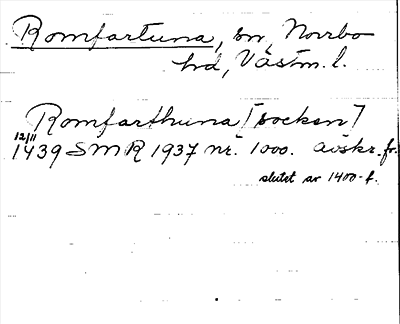 Romfartuna, sn, Norrbo
hd, Västm. l.
Romfarthuna [socken]
12/11
1439 SMR 1937 nr. 1000. avskr. fr.
slutet av 1400-t.